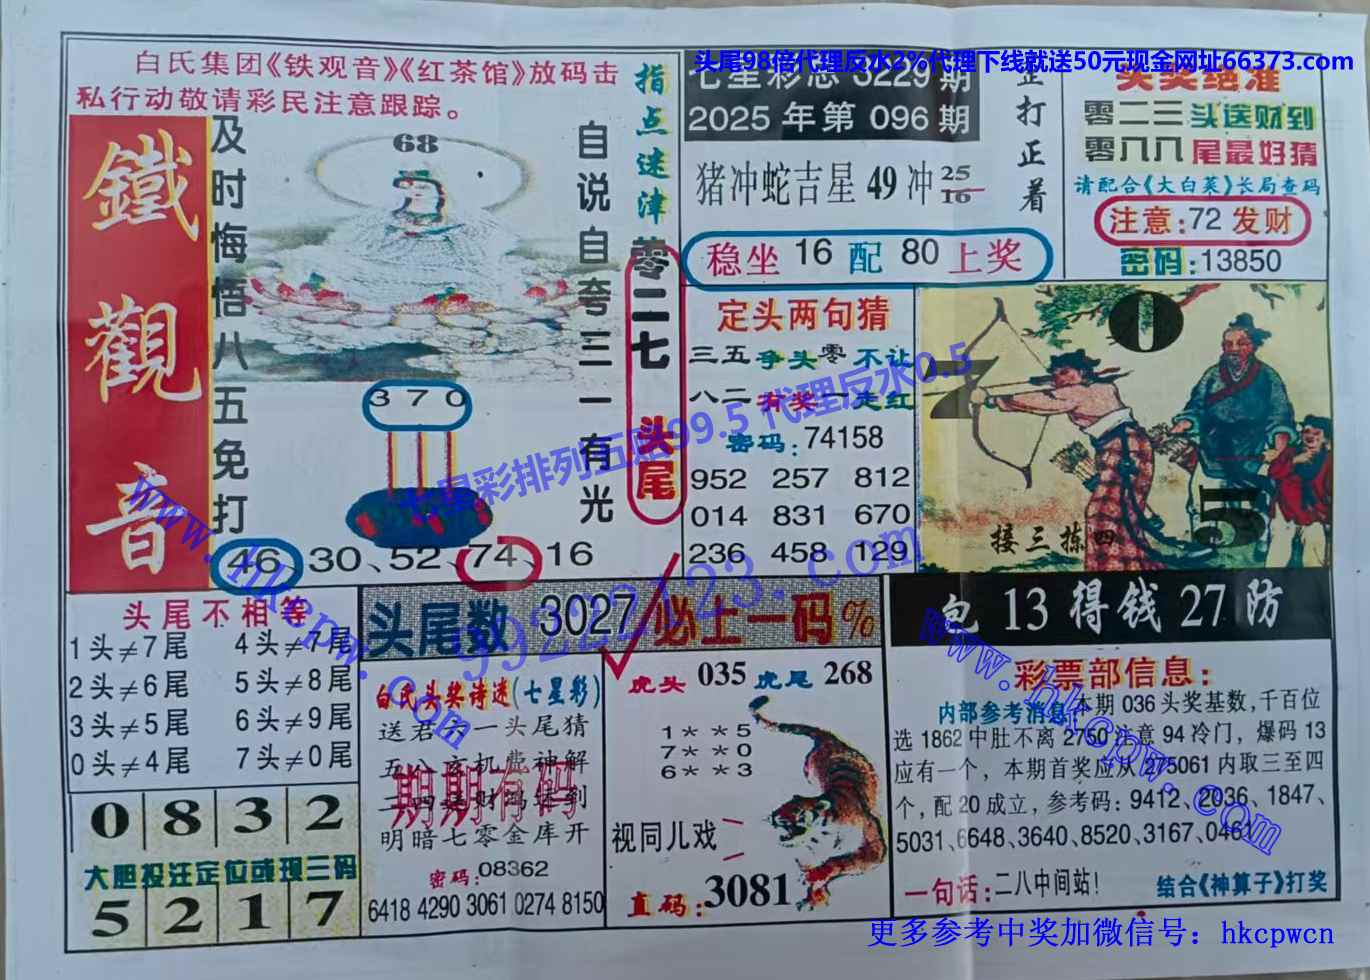 头尾98倍代理反水2%代理下线就送50元现金网址66373.com
白氏集团《铁观音》《红茶馆》放码击
私行动敬请彩民注意跟踪。
鐵觀音
及时悔悟八五免打
68
自说自夸三一有光
370
46、30、52、74、16
指点迷津
零二七
头尾
七星彩总 3229 期
2025 年第 096 期
猪冲蛇吉星 49 冲 25 16
正打正着
稳坐 16 配 80 上奖
头奖绝准
零二三头送财到
零八八尾最好猜
请配合《大白菜》长局查码
注意:72 发财
密码:13850
定头两句猜
三五争头零不让
八二有奖一走红
密码:74158
952 257 812
014 831 670
236 458 129
0
7
15
接三拣四
头尾不相等
1头≠7尾 4头≠7尾
2头≠6尾 5头≠8尾
3头≠5尾 6头≠9尾
0头≠4尾 7头≠0尾
0 8 3 2
大胆投注定位或现三码
5 2 1 7
头尾数 3027 必上一码%
白氏头奖诗迷(七星彩)
送君六一头尾猜
五八玄机费神解
期期有码
明暗七零金库开
密码:08362
6418 4290 3061 0274 8150
虎头 035 虎尾 268
1**5
7**0
6**3
视同儿戏
直码:3081
包 13 得钱 27 防
彩票部信息:
内部参考消息:本期 036 头奖基数,千百位
选 1862 中肚不离 2750 注意 94 冷门，爆码 13
应有一个，本期首奖应从 275061 内取三至四
个，配 20 成立，参考码：9412、2036、1847、
5031、6648、3640、8520、3167、0461
一句话:二八中间站!
结合《神算子》打奖
七星彩排列五底99.5 代理反水0.5
www.hkcpw.com
www.hkcpw.com
更多参考中奖加微信号：hkcpwcn